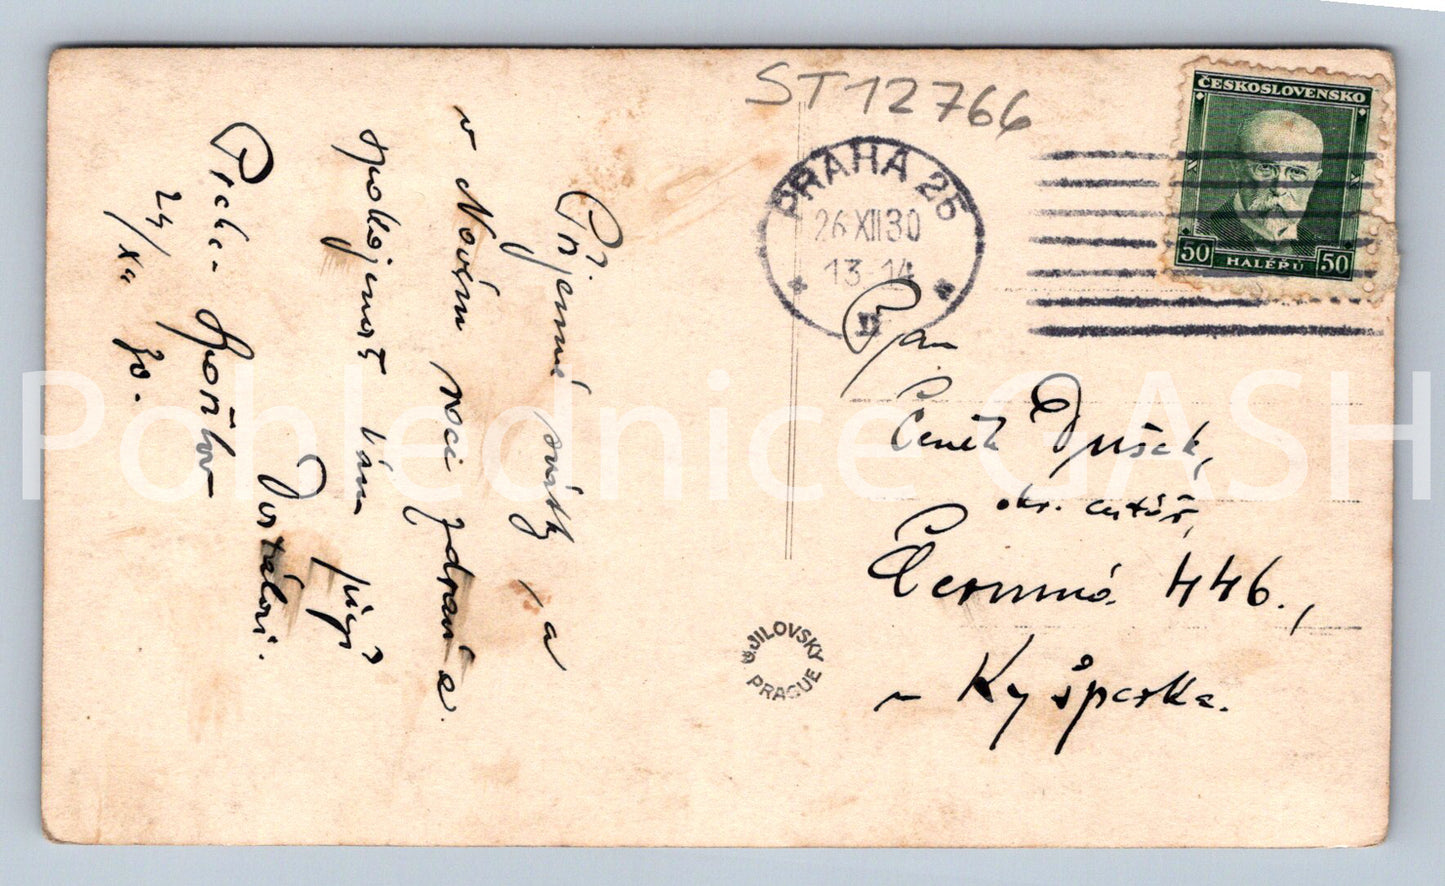 ST12766
ČESKOSLOVENSKO
50 HALÉŘŮ 50
PRAHA 25
26 XII 30
13-14
II
Příjemné svátky a
v Novém roce zdraví a
spokojenost Vám přejí
Dostálovi.
Praha - Spořilov
24/XII 30.
Pan
Čeněk Dušek,
okr. cestář,
Čermná 446.,
Kyšperka.
B.JILOVSKY
PRAGUE
Pohlednice GASH